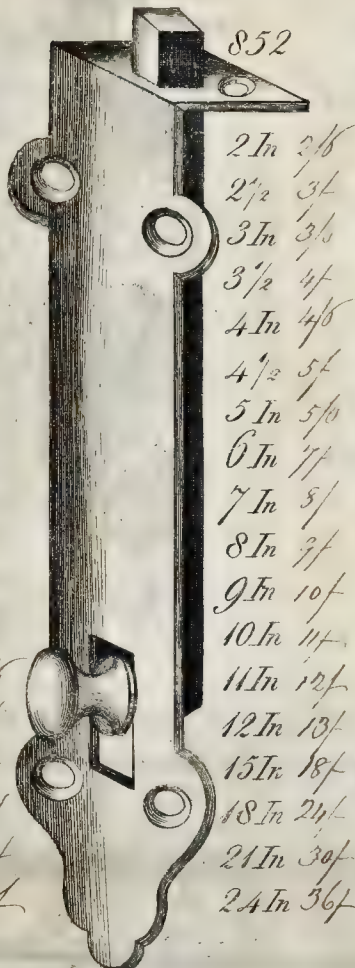 852
2 In 2/6
2 1/2 3/
3 In 3/6
3 1/2 4/
4 In 4/6
4 1/2 5/
5 In 5/6
6 In 7/
7 In 8/
8 In 9/
9 In 10/
10 In 11/
11 In 12/
12 In 13/
15 In 18/
18 In 24/
21 In 30/
24 In 36/